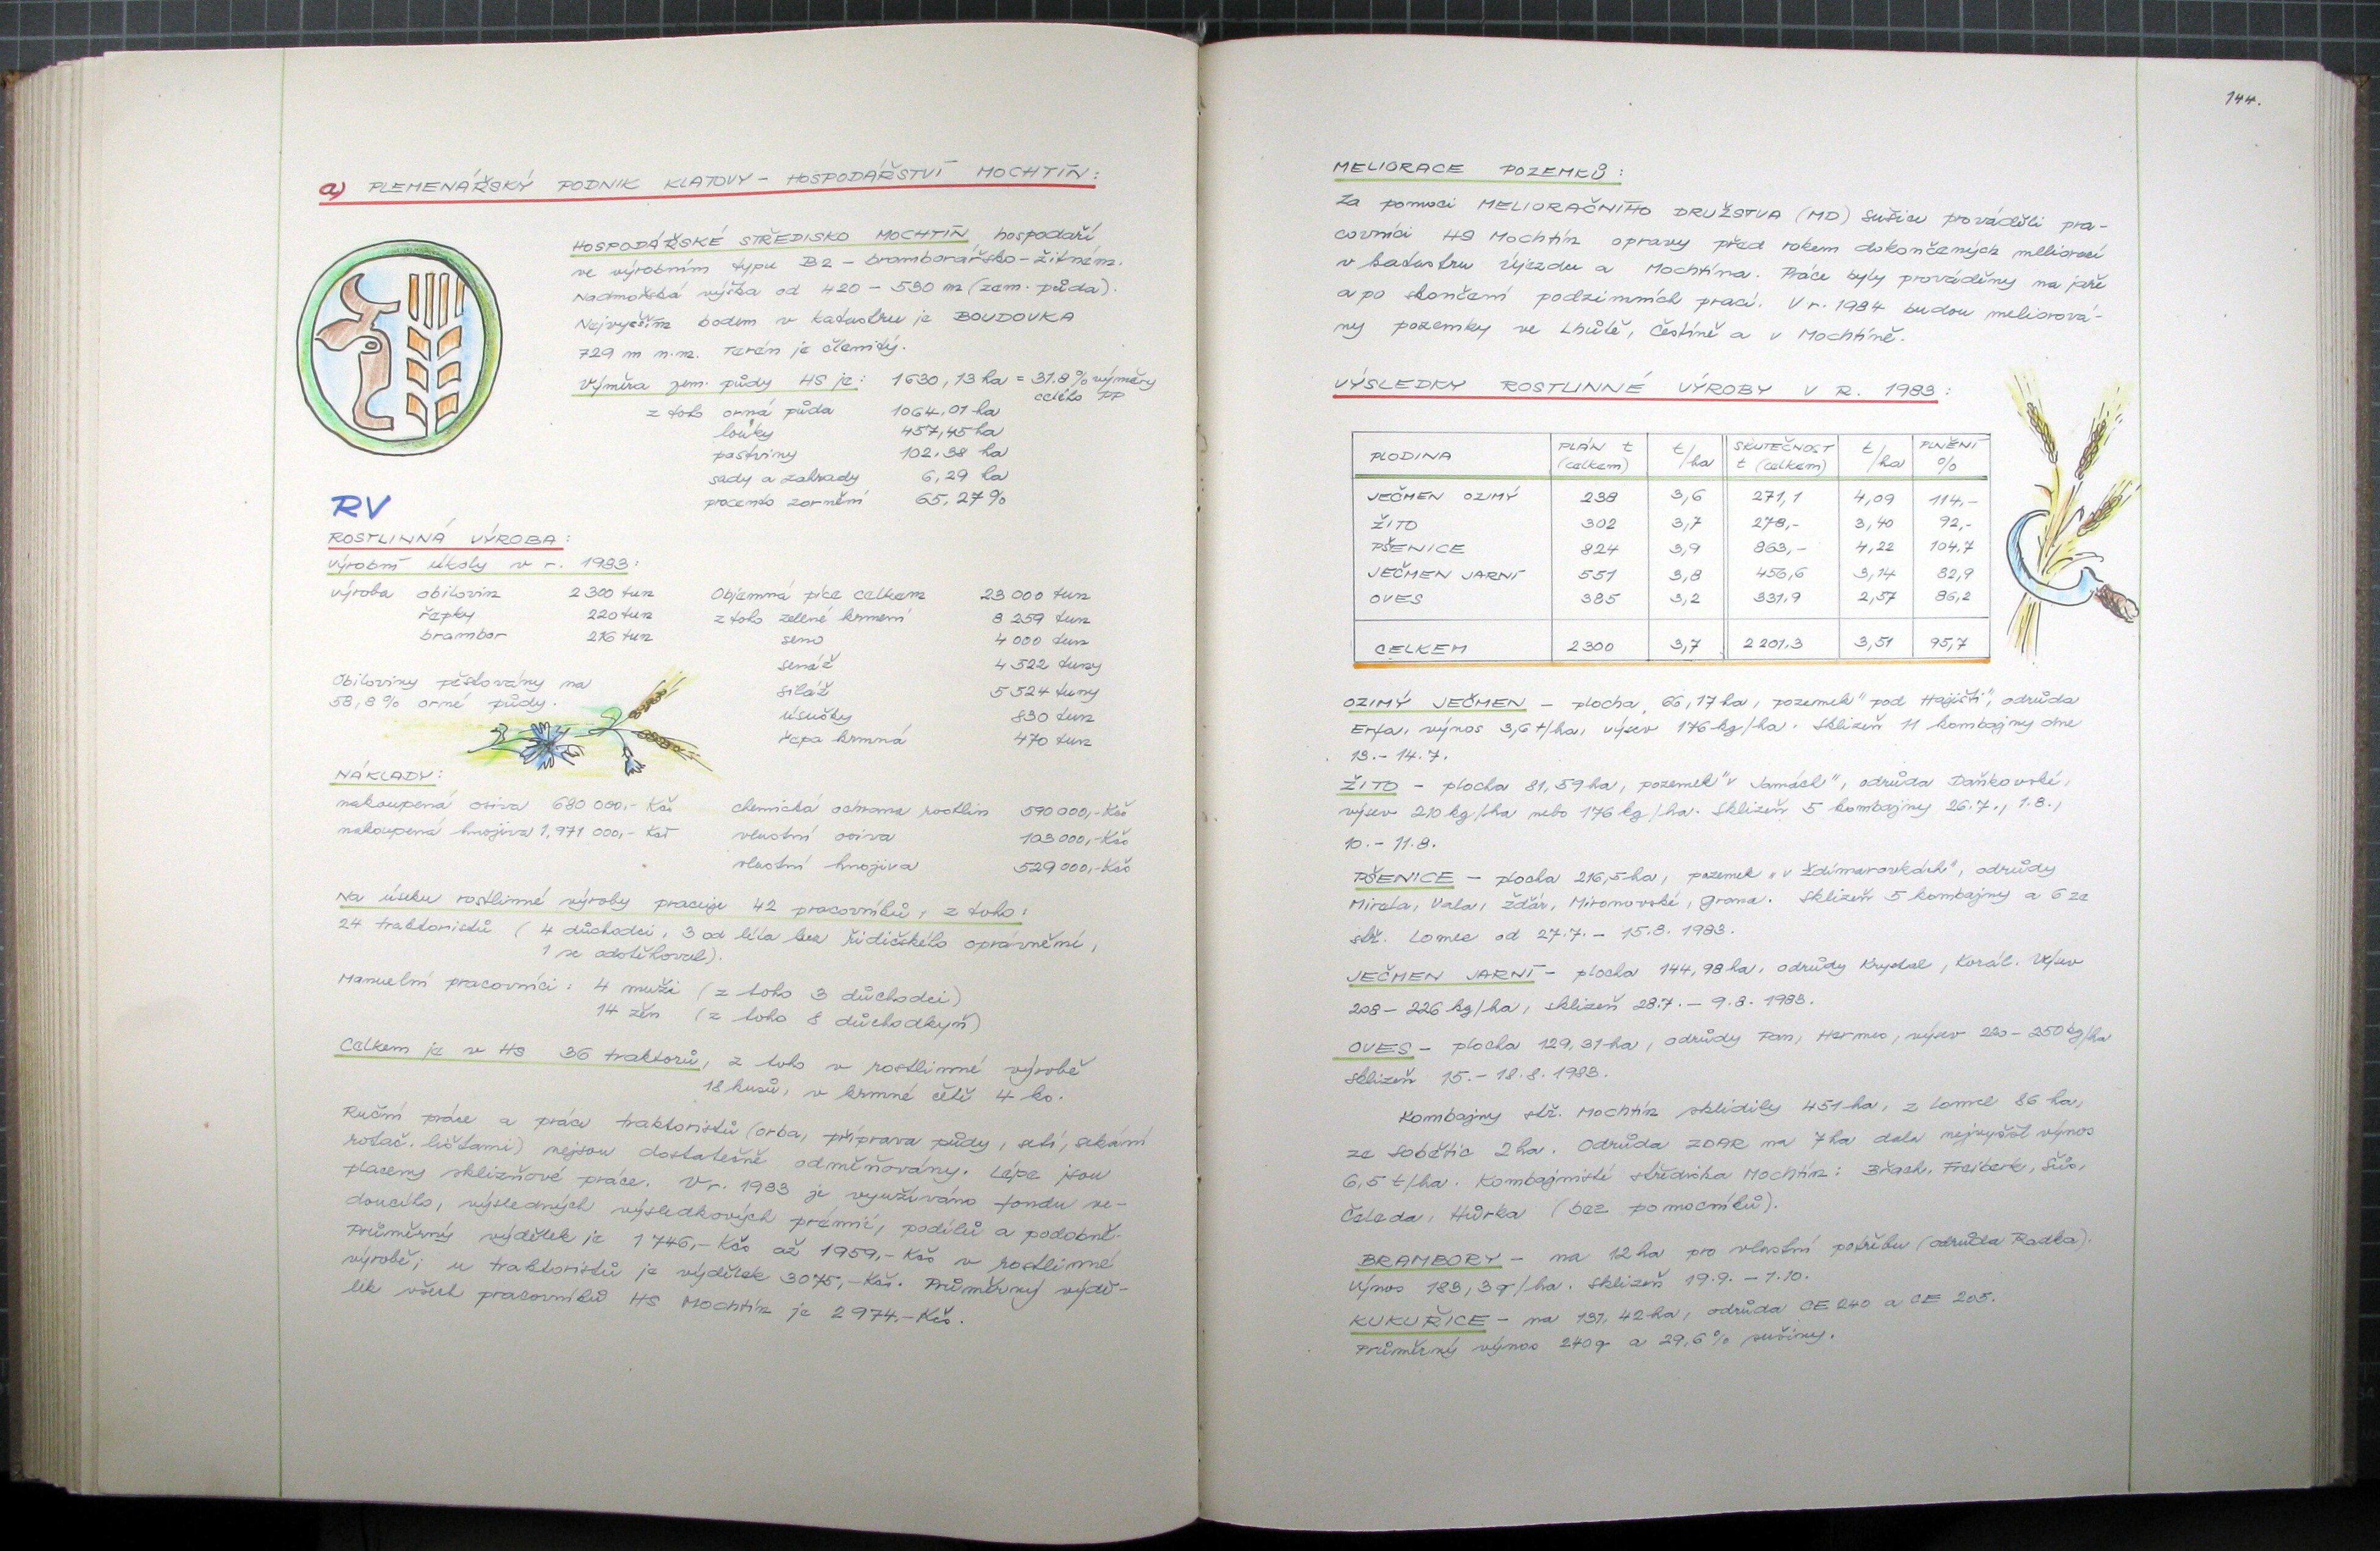 a) PLEMENÁŘSKÝ PODNIK KLATOVY – HOSPODÁŘSTVÍ MOCHTÍN:
HOSPODÁŘSKÉ STŘEDISKO MOCHTÍN hospodaří
ve výrobním typu B2 – bramborářsko-žitném.
Nadmořská výška od 420 – 530 m (zem. půda).
Nejvyšším bodem v katastru je BOUDOVKA
729 m n.m. Terén je členitý.
Výměra zem. půdy HS je: 1630,13 ha = 31.8% výměry
celého PP
z toho orná půda 1064,01 ha
louky 457,45 ha
pastviny 102,38 ha
sady a zahrady 6,29 ha
procento zornění 65,27%
RV
ROSTLINNÁ VÝROBA:
Výrobní úkoly v r. 1983:
výroba obilovin 2 300 tun Objemná píce celkem 23 000 tun
řepky 220 tun z toho zelené krmení 8 259 tun
brambor 216 tun seno 4 000 tun
senáž 4 522 tuny
Obiloviny pěstovány na siláž 5 524 tuny
58,8% orné půdy. úsušky 830 tun
řepa krmná 470 tun
NÁKLADY:
nakoupená osiva 680 000,- Kčs chemická ochrana rostlin 590 000,- Kčs
nakoupená hnojiva 1,971 000,- Kčs vlastní osiva 103 000,- Kčs
vlastní hnojiva 529 000,- Kčs
Na úseku rostlinné výroby pracuje 42 pracovníků, z toho:
24 traktoristů (4 důchodci, 3 od léta bez řidičského oprávnění,
1 se odstěhoval).
Manuelní pracovníci: 4 muži (z toho 3 důchodci)
14 žen (z toho 8 důchodkyň)
Celkem je v HS 36 traktorů, z toho v rostlinné výrobě
18 kusů, v krmné četě 4 ks.
Ruční práce a práce traktoristů (orba, příprava půdy, setí, sekání
rotač. lištami) nejsou dostatečně odměňovány. Lépe jsou
placeny sklizňové práce. V r. 1983 je využíváno fondu ve-
doucího, výsledných výsledkových prémií, podílů a podobně.
Průměrný výdělek je 1 746,- Kčs až 1959,- Kčs v rostlinné
výrobě; u traktoristů je výdělek 3075,- Kčs. Průměrný vydě-
lek všech pracovníků HS Mochtín je 2 974.- Kčs.
144.
MELIORACE POZEMKŮ:
Za pomoci MELIORAČNÍHO DRUŽSTVA (MD) Sušice prováděli pra-
covníci HS Mochtín opravy před rokem dokončených meliorací
v katastru Újezdce a Mochtína. Práce byly prováděny na jaře
a po skončení podzimních prací. V r. 1984 budou meliorová-
ny pozemky ve Lhůtě, Čestíně a v Mochtíně.
VÝSLEDKY ROSTLINNÉ VÝROBY V R. 1983:
PLODINA PLÁN t (celkem) t/ha SKUTEČNOST t (celkem) t/ha PLNĚNÍ %
JEČMEN OZIMÝ 238 3,6 271,1 4,09 114,-
ŽITO 302 3,7 278,- 3,40 92,-
PŠENICE 824 3,9 863,- 4,22 104,7
JEČMEN JARNÍ 551 3,8 456,6 3,14 82,9
OVES 385 3,2 331,9 2,57 86,2
CELKEM 2300 3,7 2 201,3 3,51 95,7
OZIMÝ JEČMEN – plocha 66,17 ha, pozemek "pod Hájišti", odrůda
Erfa, výnos 3,6 t/ha, výsev 176 kg/ha. Sklizeň 11 kombajny dne
13.– 14.7.
ŽITO – plocha 81,59 ha, pozemek "v Jamách", odrůda Daňkovské,
výsev 210 kg/ha nebo 176 kg/ha. Sklizeň 5 kombajny 26.7., 1.8.,
10.– 11.8.
PŠENICE – plocha 216,5 ha, pozemek „v Ždimarovkách", odrůdy
Mirela, Vala, Žďár, Mironovské, Grana. Sklizeň 5 kombajny a 6 ze
stř. Lomec od 27.7.– 15.8. 1983.
JEČMEN JARNÍ – plocha 144,98 ha, odrůdy Krystal, Korál. Výsev
208– 226 kg/ha, sklizeň 28.7.– 9.8. 1983.
OVES – plocha 129,31 ha, odrůdy Pan, Hermes, výsev 220– 250 kg/ha
sklizeň 15.– 18.8. 1983.
Kombajny stř. Mochtín sklidily 451 ha, z Lomce 86 ha,
ze Sobětic 2 ha. Odrůda ZDAR na 7 ha dala nejvyšší výnos
6,5 t/ha. Kombajnisté střediska Mochtín: Břach, Freiberk, Šůs,
Čeleda, Hůrka (bez pomocníků).
BRAMBORY – na 12 ha pro vlastní potřebu (odrůda Radka).
Výnos 183,3 q/ha. Sklizeň 19.9. – 1.10.
KUKUŘICE – na 131,42 ha, odrůda CE 240 a CE 205.
Průměrný výnos 240 q a 29,6% sušiny.